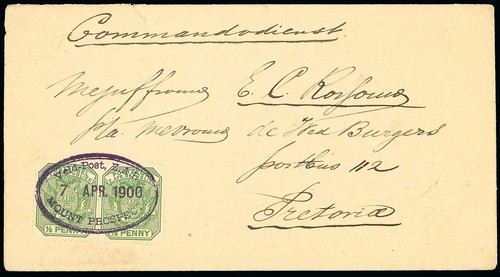 Commandodienst.
Mejuffrouw E. C.
p/a. Mevrouw de Wed Burgers
postbus 112
Pretoria
Veld-Post, Z.A.R.
7 APR. 1900
MOUNT PROSPECT
½ PENNY ½ PENNY